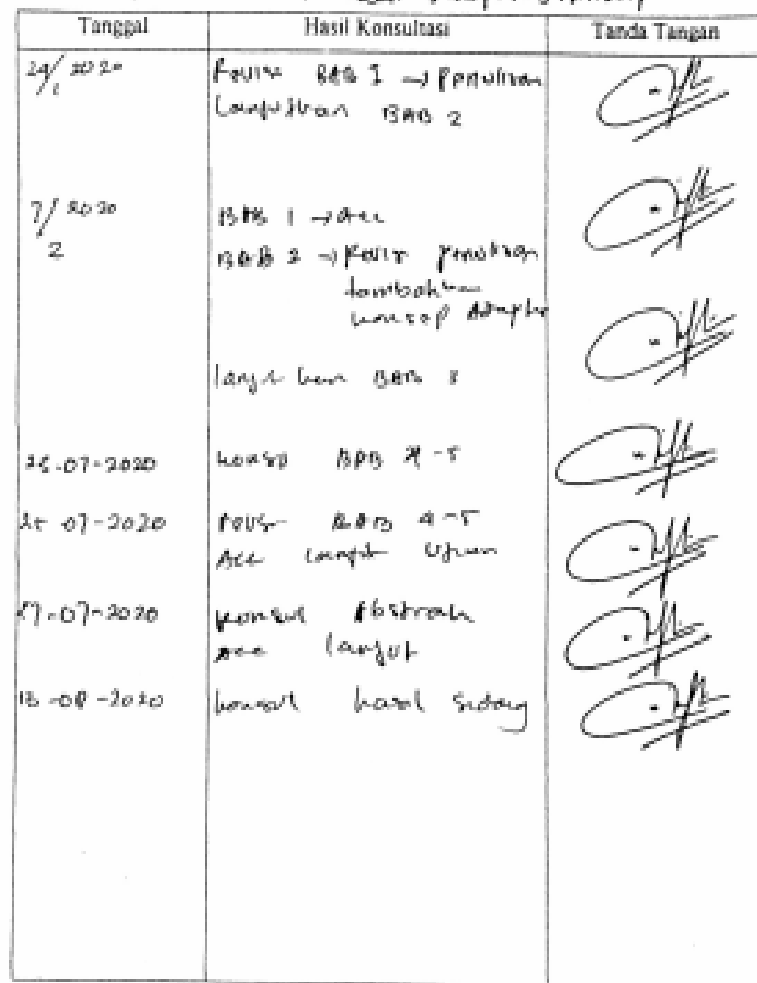 Tanggal Hasil Konsultasi Tanda Tangan
2020 Revisi BAB 1 → Penulisan
Lanjutkan BAB 2
7/2 2020
BAB 1 → Acc
BAB 2 → Revisi penulisan
tambahkan
konsep
lanjutkan BAB 3
-07-2020 konsul BAB 4-5
25-07-2020 revisi BAB 4-5
Acc lanjut Ujian
27-07-2020 konsul Abstrak
Acc lanjut
-08-2020 konsul hasil sidang